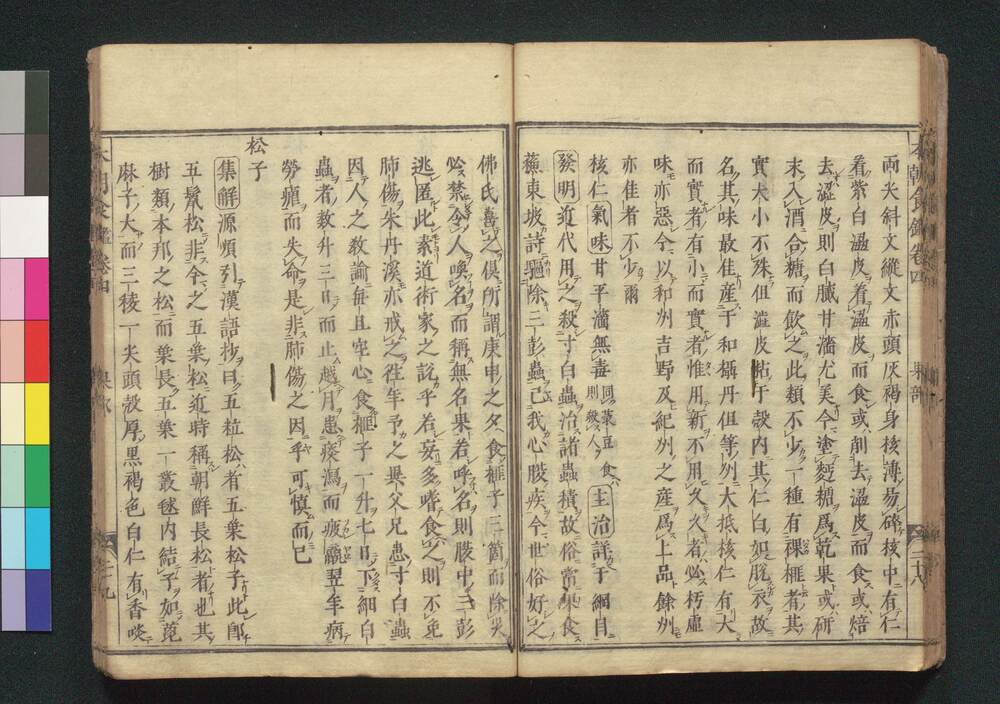 両尖斜文縱文赤頭灰褐身核薄易碎核中有仁
着紫白溫皮着溫皮而食或削去溫皮而食或焙
去澀皮則白膩甘濇尤美今塗麪糖爲乾果或研
末入酒合糖而飲之此類不少一種有裸榧者其
實大小不殊但澁皮粘于殻内其仁白如脱衣故
名其味最佳産于和攝丹但等列大抵核仁有大
而實者有小而實者惟用新不用久久者必朽虚
味亦惡今以和州吉野及紀州之産爲上品餘州
亦佳者不少爾
核仁氣味甘平濇無毒同菉豆食則殺人主治詳于綱目
發明近代用之殺寸白蟲治諸蟲積故俗常果食
蘓東坡詩驅除三彭蟲已我心腹疾今世俗好之
本朝食鑑卷四 果部 二十八
佛氏喜之俱所謂庚申之夕食榧子三箇而除尖
呪禁令人喚名而稱無名果若呼名則腹中三彭
逃匿此素道術家之說乎若妄多嗜食之則不免
肺傷朱丹溪亦戒之往年予之異父兄患寸白蟲
因人之教諭毎旦空心食榧子一升七日下細白
蟲者数升三日而止越月患痰瀉而疲羸翌年病
勞瘵而失命是非肺傷之因乎可慎而已
松子
集解源順引漢語抄曰五粒松者五葉松子此即
五鬣松非今之五葉松近時稱朝鮮長松者也其
樹類本邦之松而葉長五葉一叢毬内結子如菎
麻子大而三稜一尖頭殻厚黒褐色白仁有香啖
本朝食鑑卷四 果部 二十九